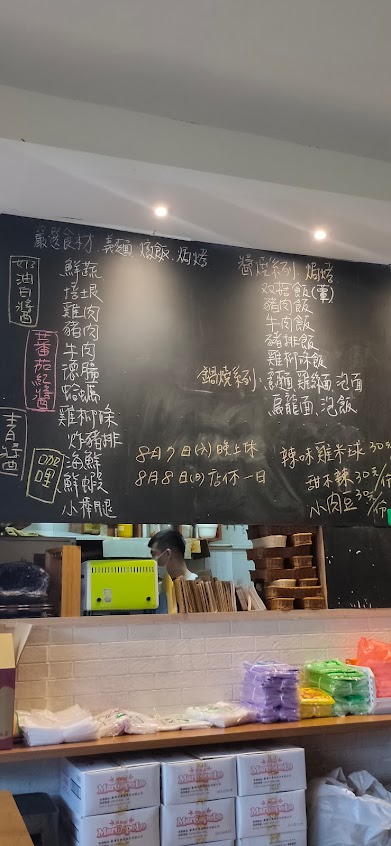 嚴選食材 義麵、燉飯、焗烤
奶油白醬
蕃茄紅醬
青醬
咖哩
鮮蔬
培根
雞肉
豬肉
牛肉
德腸
蛤蠣
雞柳條
炸豬排
海鮮
鮮蝦
小棒腿
醬燒系列 焗烤
豬肉飯
牛肉飯
豬排飯
鍋燒系列:意麵、雞絲麵、泡面
烏龍面、泡飯
8月7日(六)晚上休
8月8日(日)店休一日
辣味雞米球 30元
甜不辣30元/份
小肉豆30元/份